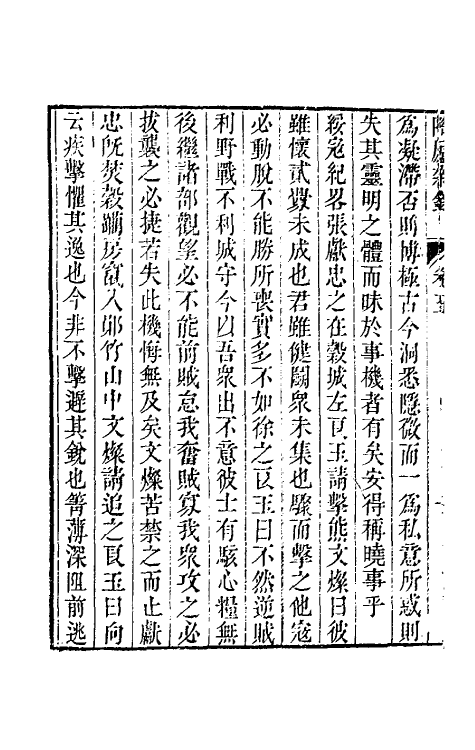 爲凝滯否則博極古今洞悉隱微而一爲私意所惑則
失其靈明之體而昧於事機者有矣安得稱曉事乎
綏寇紀畧張獻忠之在穀城左良玉請擊熊文燦曰彼
雖懷貳釁未成也君雖健鬬衆未集也驟而擊之他寇
必動脫不能勝所喪實多不如徐之良玉曰不然逆賊
利野戰不利城守今以吾衆出不意彼士有駭心糧無
後繼諸部觀望必不能前賊怠我奮賊寡我衆攻之必
拔襲之必捷若失此機悔無及矣文燦苦禁之而止獻
忠旣焚穀躪房竄入鄖竹山中文燦請追之良玉曰向
云疾擊懼其逸也今非不擊遲其銳也箐薄深阻前逃